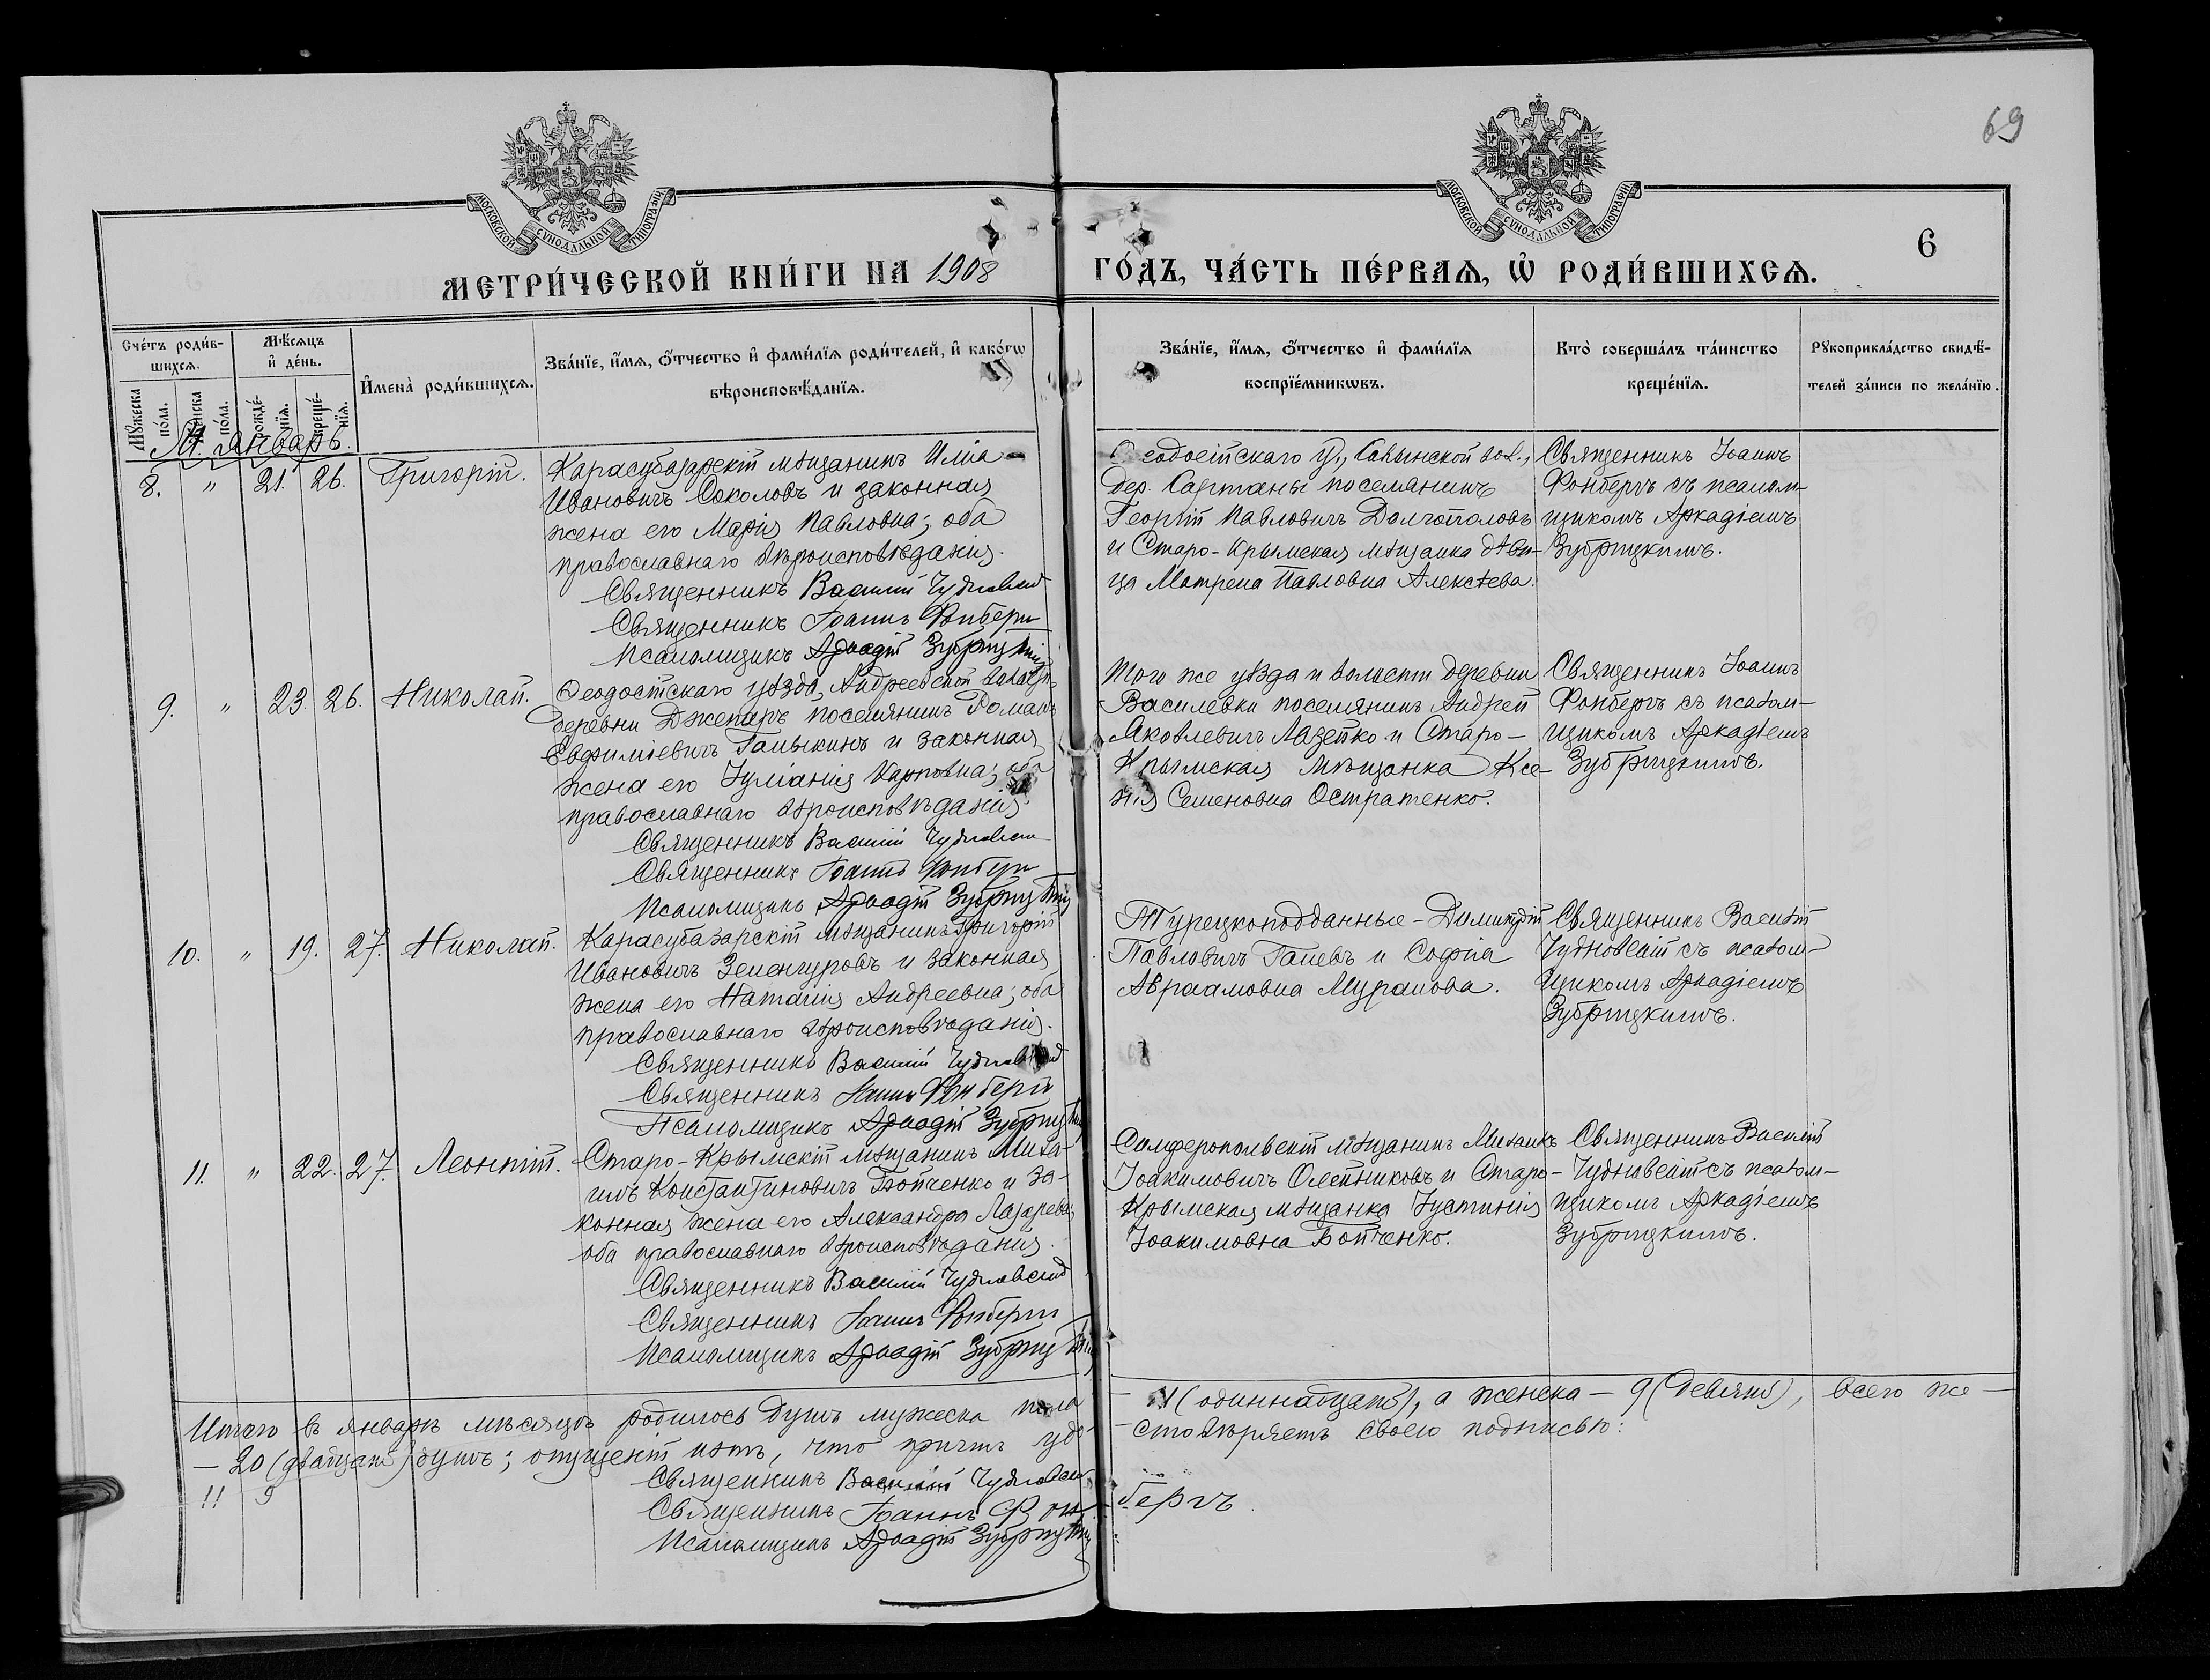 69
МОСКОВСКОЙ СѴНОДАЛЬНОЙ ТИПОГРАФІИ
МОСКОВСКОЙ СѴНОДАЛЬНОЙ ТИПОГРАФІИ
6
МЕТРИ́ЧЕСКОЙ КНИ́ГИ НА 1908
ГО́ДЪ, ЧА́СТЬ ПЕ́РВАѦ, Ѡ҆ РОДИ́ВШИХСѦ.
Сче́тъ роди́в-
шихсѧ.
Мꙋ́жеска
по́ла.
Же́нска
по́ла.
Мѣ́сѧцъ
и҆ де́нь.
рожде́-
нїѧ.
креще́-
нїѧ.
И҆мена̀ роди́вшихсѧ.
Зва́нїе, и҆́мѧ, ѻ҆́тчество и҆ фами́лїѧ роди́телей, и҆ како́гѡ
вѣроисповѣ́данїѧ.
Зва́нїе, и҆́мѧ, ѻ҆́тчество и҆ фами́лїѧ
воспрїе́мникѡвъ.
Кто̀ соверша́лъ та́инство
креще́нїѧ.
Рꙋкоприкла́дство свидѣ́-
телей за́писи по жела́нїю.
М. Январь.
8. " 21. 26. Григорій.
Карасубазарскій мѣщанинъ Илія
Ивановичъ Соколовъ и законная
жена его Марія Павловна; оба
православнаго вѣроисповѣданія.
Священникъ Василій Чудновскій
Священникъ Іоаннъ Фонбергъ
Псаломщикъ Аркадій Зубрицкій
Ѳеодосійскаго у., вол.,
дер. Сартаны поселянинъ
Георгій Павловичъ Долгополовъ
и Старо-Крымская мѣщанка дѣви-
ца Матрена Павловна Алексѣева.
Священникъ Іоаннъ
Фонбергъ съ псалом-
щикомъ Аркадіемъ
Зубрицкимъ.
9. " 23. 26. Николай.
Ѳеодосійскаго уѣзда, Андреевской волости,
деревни Джепаръ поселянинъ Романъ
Евфиміевичъ Галыкинъ и законная
жена его Іуліанія Карповна; оба
православнаго вѣроисповѣданія.
Священникъ Василій Чудновскій
Священникъ Іоаннъ Фонбергъ
Псаломщикъ Аркадій Зубрицкій
Того же уѣзда и волости деревни
Василевки поселянинъ Андрей
Яковлевичъ Лазейко и Старо-
Крымская мѣщанка Ксе-
нія Семеновна Остратенко.
Священникъ Іоаннъ
Фонбергъ съ псалом-
щикомъ Аркадіемъ
Зубрицкимъ.
10. " 19. 27. Николай.
Карасубазарскій мѣщанинъ Григорій
Ивановичъ Зеленгуровъ и законная
жена его Наталія Андреевна; оба
православнаго вѣроисповѣданія.
Священникъ Василій Чудновскій
Священникъ Іоаннъ Фонбергъ
Псаломщикъ Аркадій Зубрицкій
Турецкоподданные -
Павловичъ Галевъ и Софія
Авраамовна Муратова.
Священникъ Василій
Чудновскій съ псалом-
щикомъ Аркадіемъ
Зубрицкимъ.
11. " 22. 27. Леонтій.
Старо-Крымскій мѣщанинъ Миха-
илъ Константиновичъ Бойченко и за-
конная жена его Александра Лазарева;
оба православнаго вѣроисповѣданія.
Священникъ Василій Чудновскій
Священникъ Іоаннъ Фонбергъ
Псаломщикъ Аркадій Зубрицкій
Симферопольскій мѣщанинъ Михаилъ
Іоакимовичъ Олейниковъ и Старо-
Крымская мѣщанка Іустинія
Іоакимовна Бойченко.
Священникъ Василій
Чудновскій съ псалом-
щикомъ Аркадіемъ
Зубрицкимъ.
Итого въ январѣ мѣсяцѣ родилось душъ мужеска пола
— 11 (одиннадцать), а женска — 9 (девять), всего же —
— 20 (двадцать) душъ; опущеній нѣтъ, что причтъ удо-
— стовѣряетъ своею подписью:
11 9
Священникъ Василій Чудновскій
Священникъ Іоаннъ Фонбергъ
Псаломщикъ Аркадій Зубрицкій